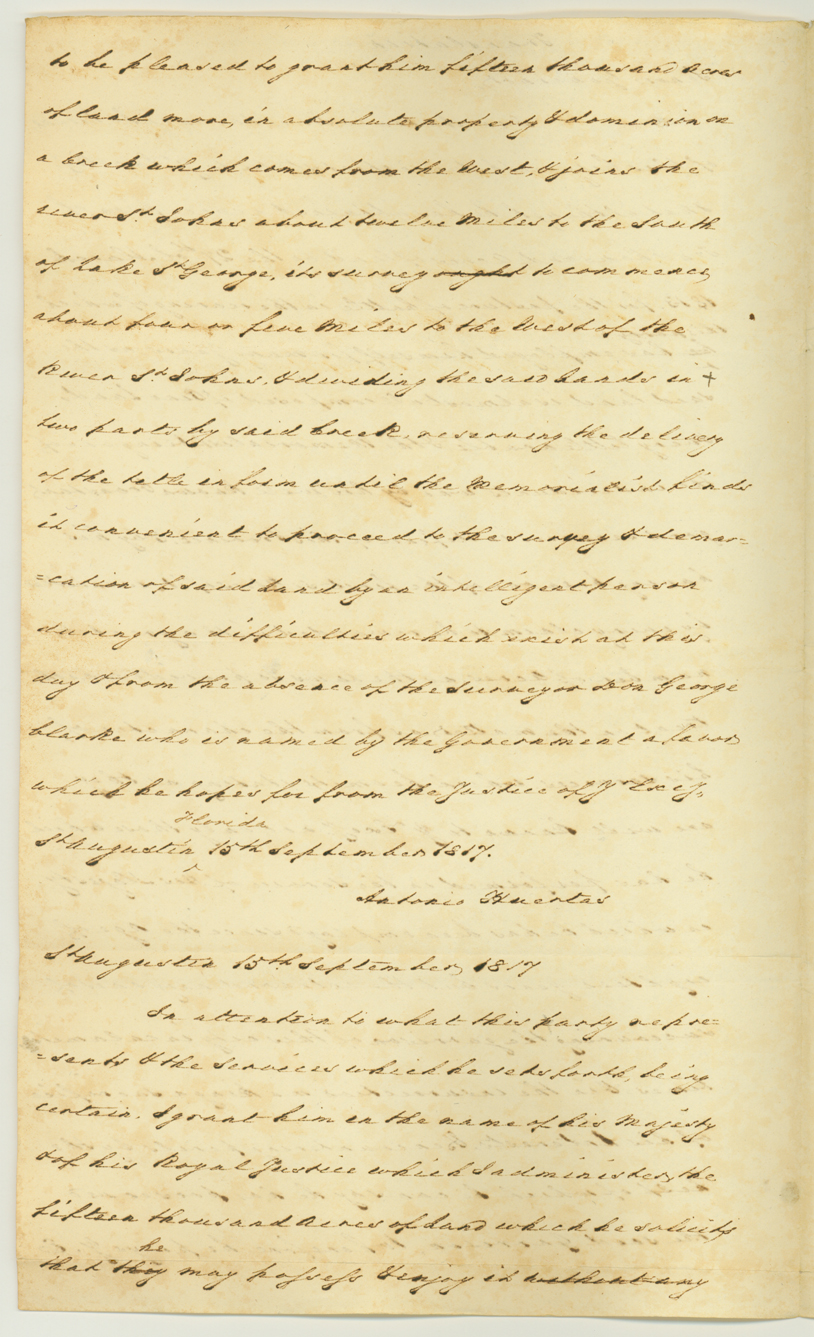 to be pleased to grant him fifteen thousand acres
of land more, in absolute property & dominion on
a Creek which comes from the West, & joins the
river St. Johns about twelve Miles to the South
of Lake St George, its survey ought to commence,
about four or five Miles to the West of the
River St. Johns, & dividing the said Lands in +
two parts by said Creek, reserving the delivery
of the title in form until the Memorialist finds
it convenient to proceed to the survey & demar=
=cation of said Land by an intelligent person
during the difficulties which exist at this
day & from the absence of the Surveyor Don George
Clarke who is named by the Government a favor
which he hopes for from the Justice of Yr Excy.
Florida
St Augustin ^ 15th September 1817.
Antonio Huertas
St Augustin 15th September, 1817
In attention to what this party repre=
=sents & the services which he sets forth, being
certain. I grant him in the name of his Majesty
& of his Royal Justice which I administer, the
fifteen thousand Acres of Land which he solicits
he
that they may possess & enjoy it without any